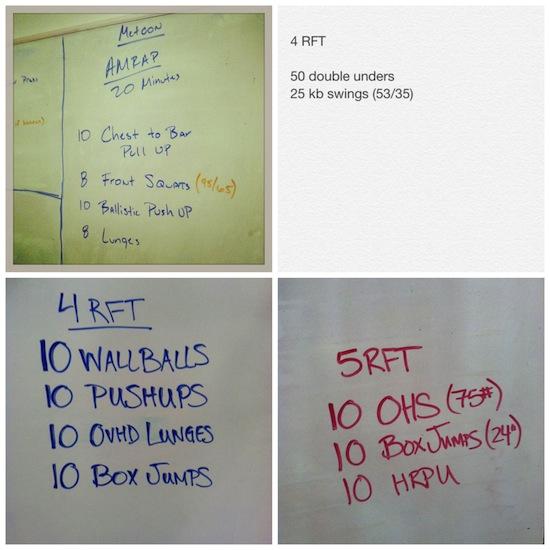 Metcon
AMRAP
20 Minutes
Press
10 Chest to Bar
Pull UP
8 Front Squats (95/65)
10 Ballistic Push UP
8 Lunges
4 RFT
50 double unders
25 kb swings (53/35)
4 RFT
10 WALLBALLS
10 PUSHUPS
10 OVHD LUNGES
10 BOX JUMPS
5RFT
10 OHS (75#)
10 BOX JUMPS (24")
10 HRPU